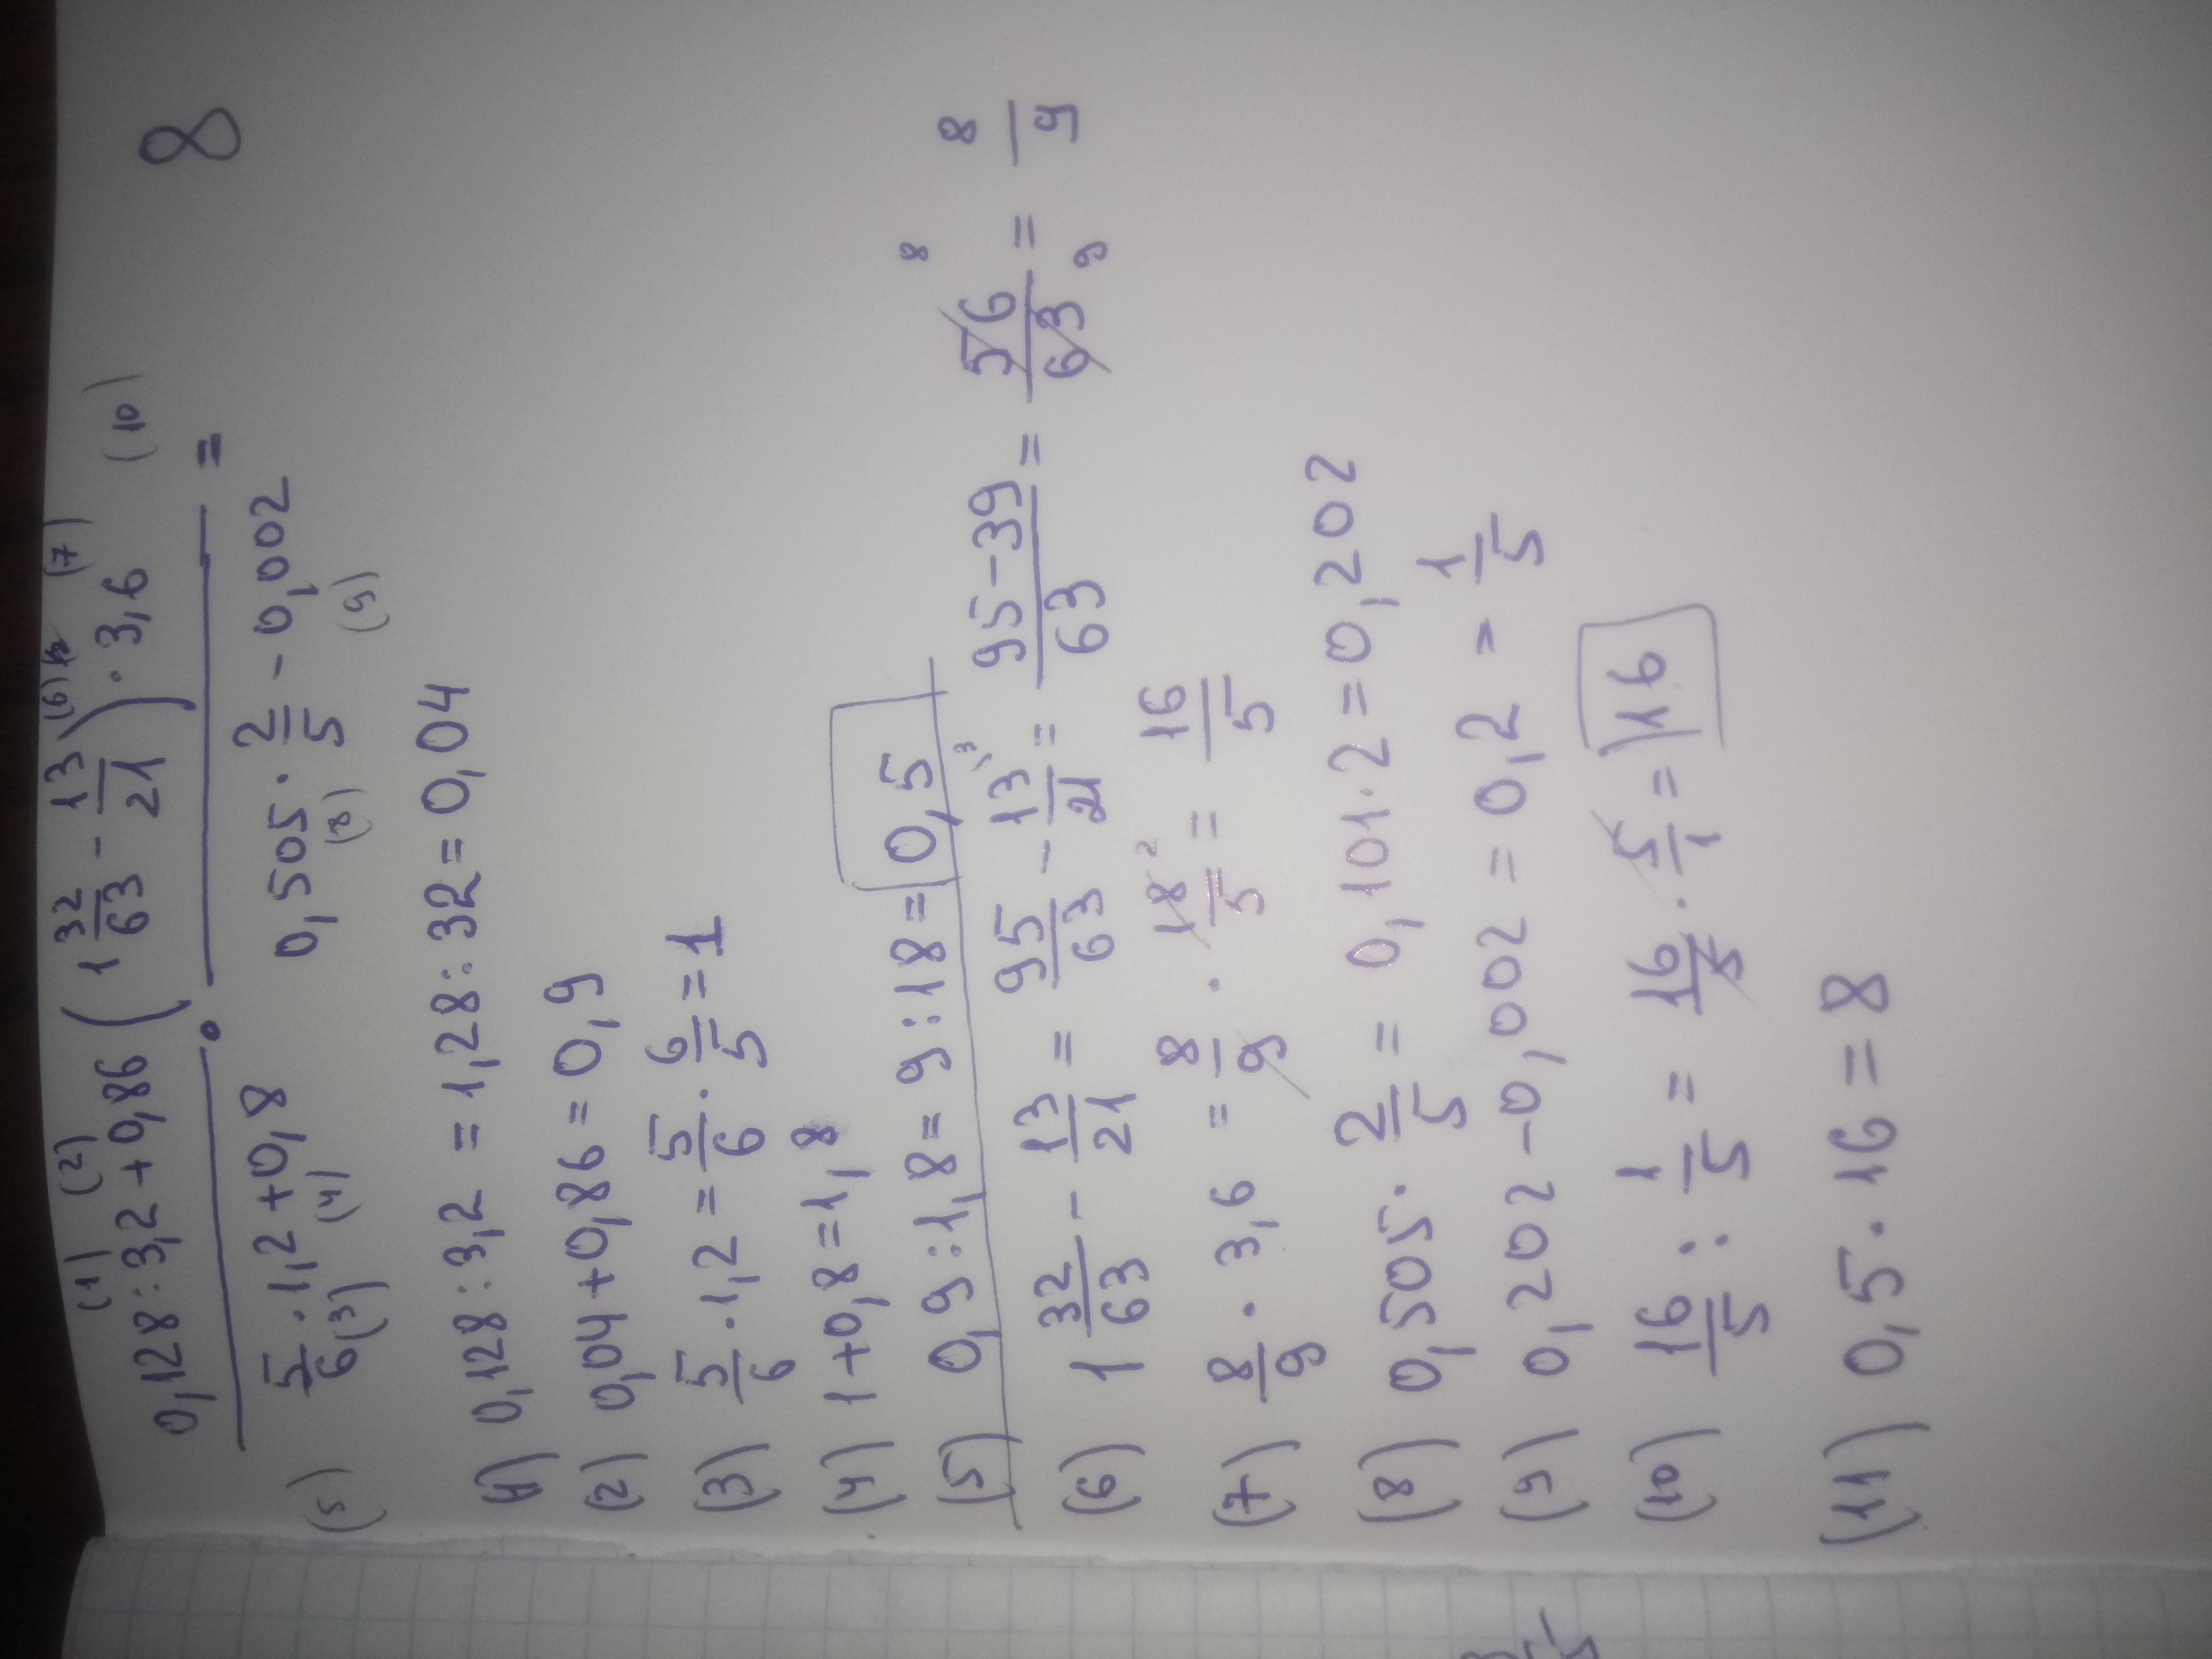 (1) (2) (6) (7)
0,128 : 3,2 + 0,86 ( 1 32/63 - 13/21 ) · 3,6 (10)
———— · ———— = 8
5/6 · 1,2 + 0,8 0,505 · 2/5 - 0,002
(5) (3) (4) (8) (9)
1) 0,128 : 3,2 = 1,28 : 32 = 0,04
(2) 0,04 + 0,86 = 0,9
(3) 5/6 · 1,2 = 5/6 · 6/5 = 1
(4) 1 + 0,8 = 1,8
(5) 0,9 : 1,8 = 9 : 18 = 0,5
(6) 1 32/63 - 13/21 = 95/63 - 13/21 \3 = 95-39/63 = 56/63 8 9 = 8/9
(7) 8/9 · 3,6 = 8/9 · 18/5 2 = 16/5
(8) 0,505 · 2/5 = 0,101 · 2 = 0,202
(9) 0,202 - 0,002 = 0,2 = 1/5
(10) 16/5 : 1/5 = 16/5 · 5/1 = 16
(11) 0,5 · 16 = 8